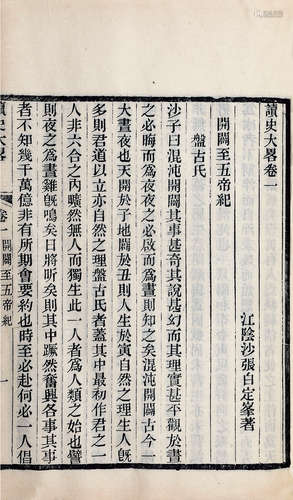 讀史大畧卷一
江陰沙張白定峯著
開闢至五帝紀
盤古氏
沙子曰混沌開闢其事甚奇其說甚幻而其理實甚平觀於晝
之必晦而爲夜夜之必啟而爲晝則知之矣混沌開闢古今一
大晝夜也天開於子地闢於丑則人生於寅自然之理生人既
多則君道以立亦自然之理盤古氏者蓋其中最初作君之一
人非六合之內曠然無人而獨生此一人者爲人類之始也譬
則夜之爲晝雞旣鳴矣日將昕矣則其中蹶然奮興各事其事
者不知幾千萬億非有所期會要約也時至必赴何必一人倡
讀史大畧
卷一 開闢至五帝紀
一